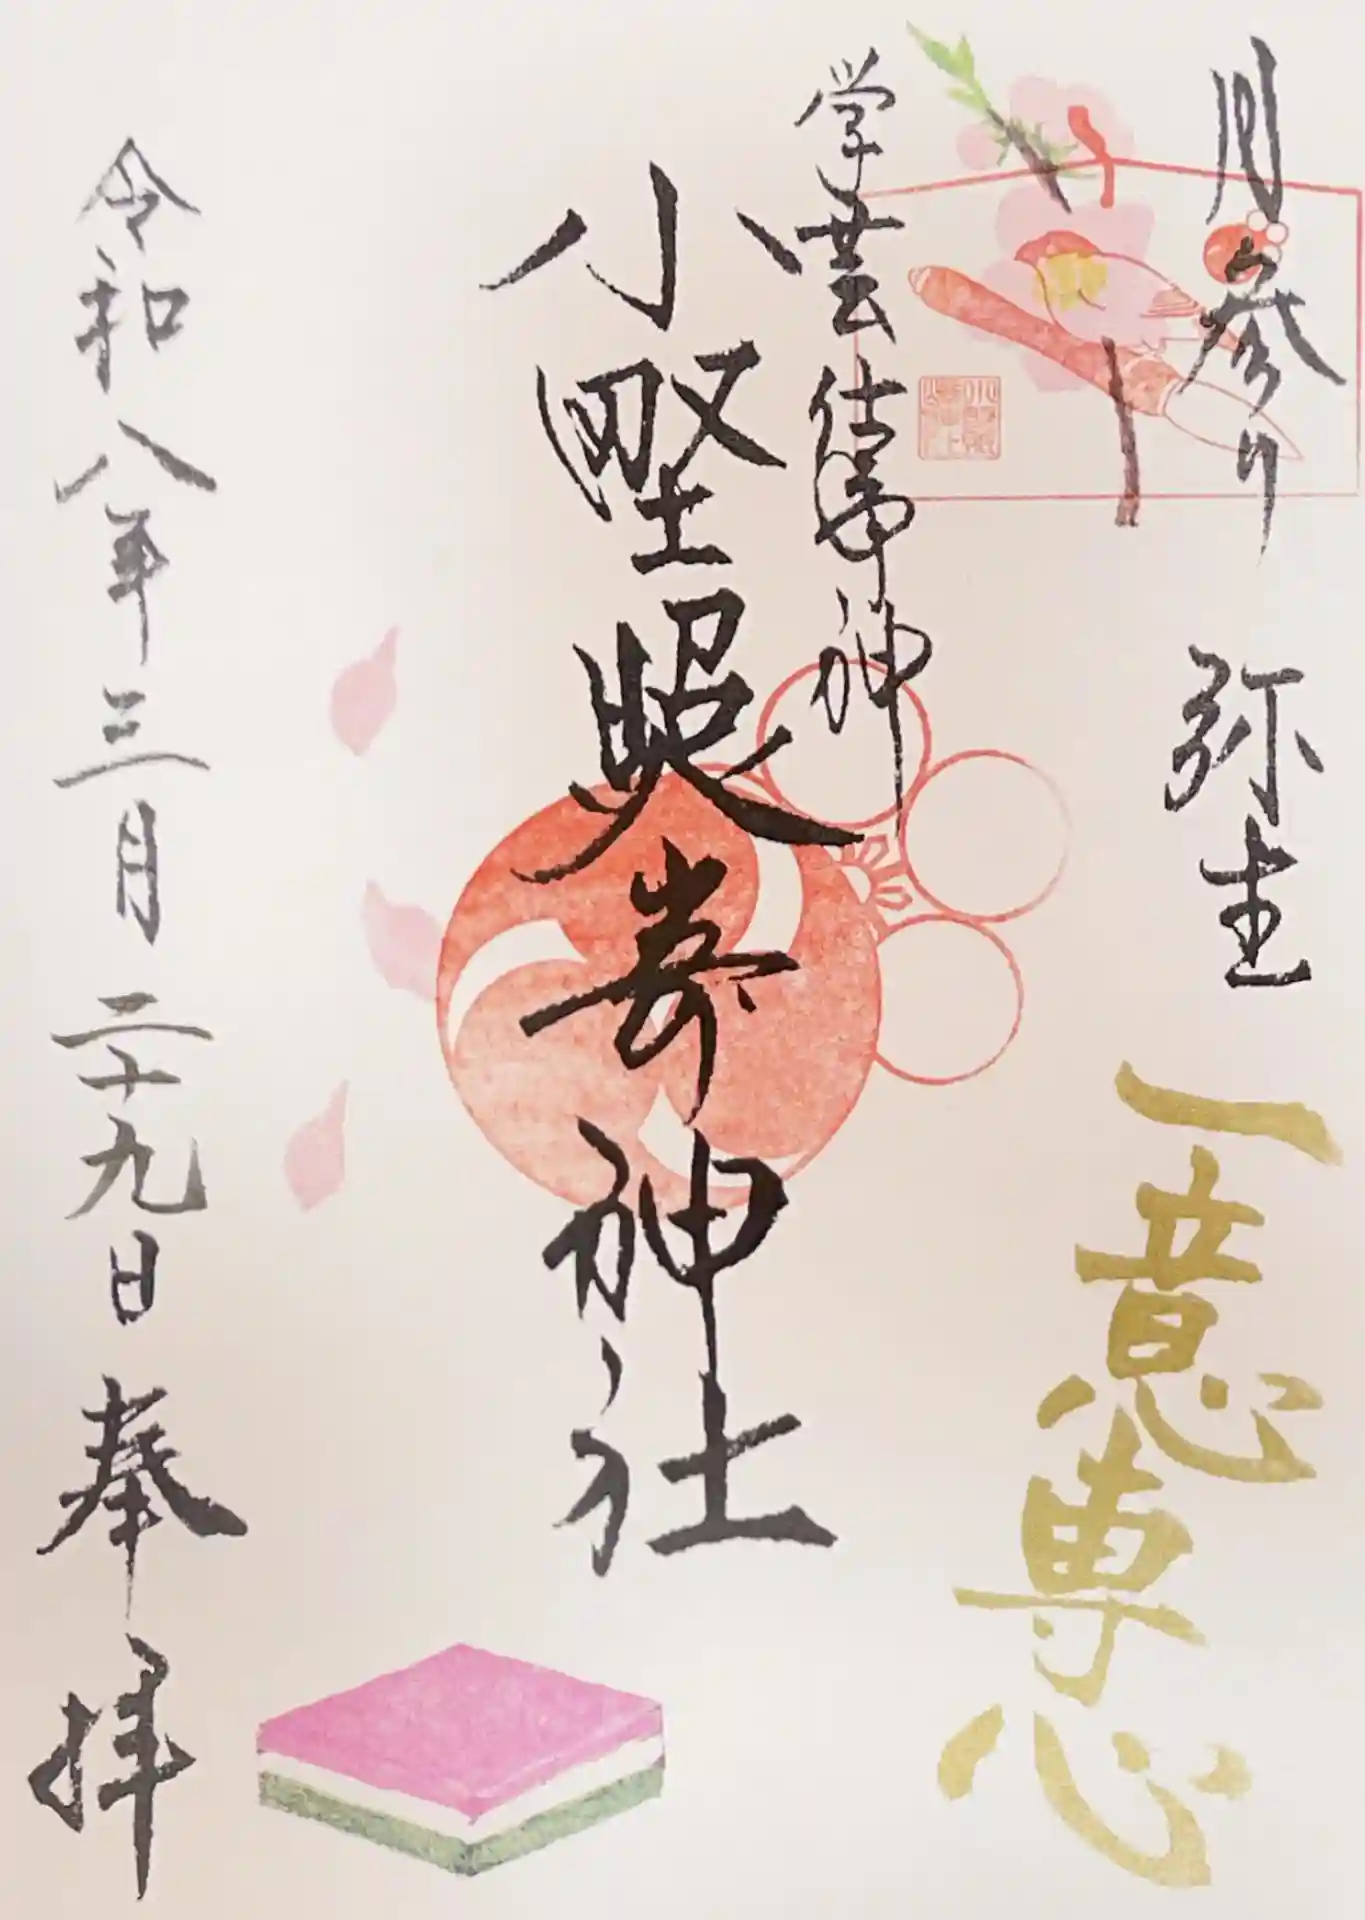 月参り 弥生
一意専心
学芸仕事神
小野照崎神社
令和八年三月二十九日 奉拝